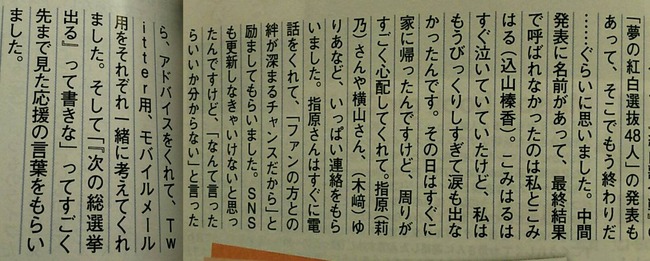 「夢の紅白選抜48人」の発表も
あって、そこでもう終わりだ
……ぐらいに思いました。中間
発表に名前があって、最終結果
で呼ばれなかったのは私とこみ
はる(込山榛香)。こみはるは
すぐ泣いていていたけど、私は
もうびっくりしすぎて涙も出な
かったんです。その日はすぐに
家に帰ったんですけど、周りが
すごく心配してくれて。指原(莉
乃)さんや横山さん、(木﨑)ゆ
りあなど、いっぱい連絡をもら
いました。指原さんはすぐに電
話をくれて、「ファンの方との
絆が深まるチャンスだから」と
励ましてもらいました。SNS
も更新しなきゃいけないと思っ
たんですけど、「なんて言った
らいいか分からない」と言った
ら、アドバイスをくれて、Tw
itter用、モバイルメール
用をそれぞれ一緒に考えてくれ
ました。そして「『次の総選挙
出る』って書きな」ってすごく
先まで見た応援の言葉をもらい
ました。